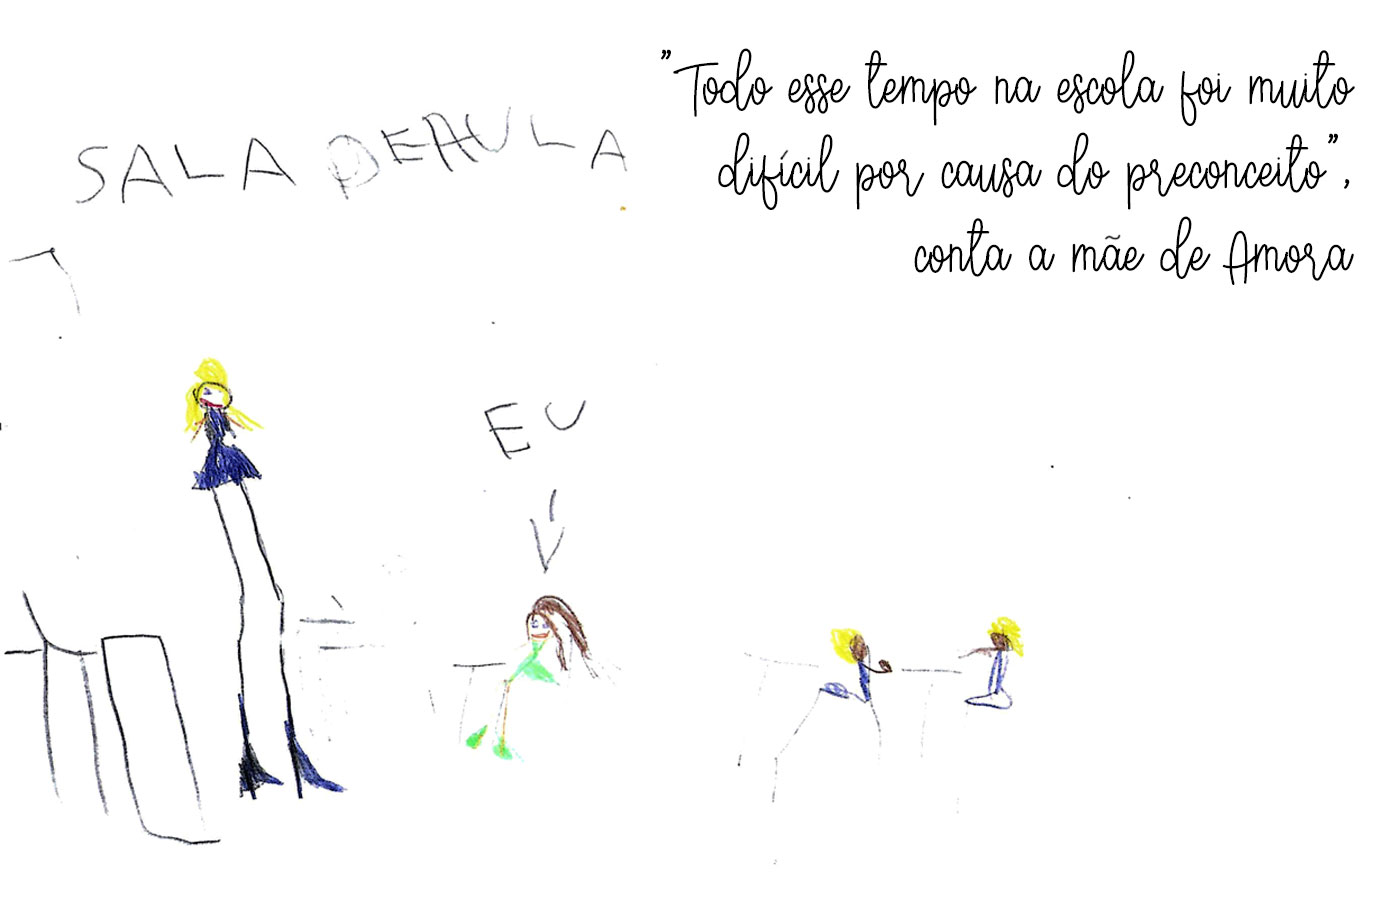 "Todo esse tempo na escola foi muito
difícil por causa do preconceito",
conta a mãe de Amora
SALA DEAULA
EU